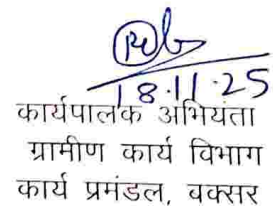 18.11.25
कार्यपालक अभियंता
ग्रामीण कार्य विभाग
कार्य प्रमंडल, वक्सर